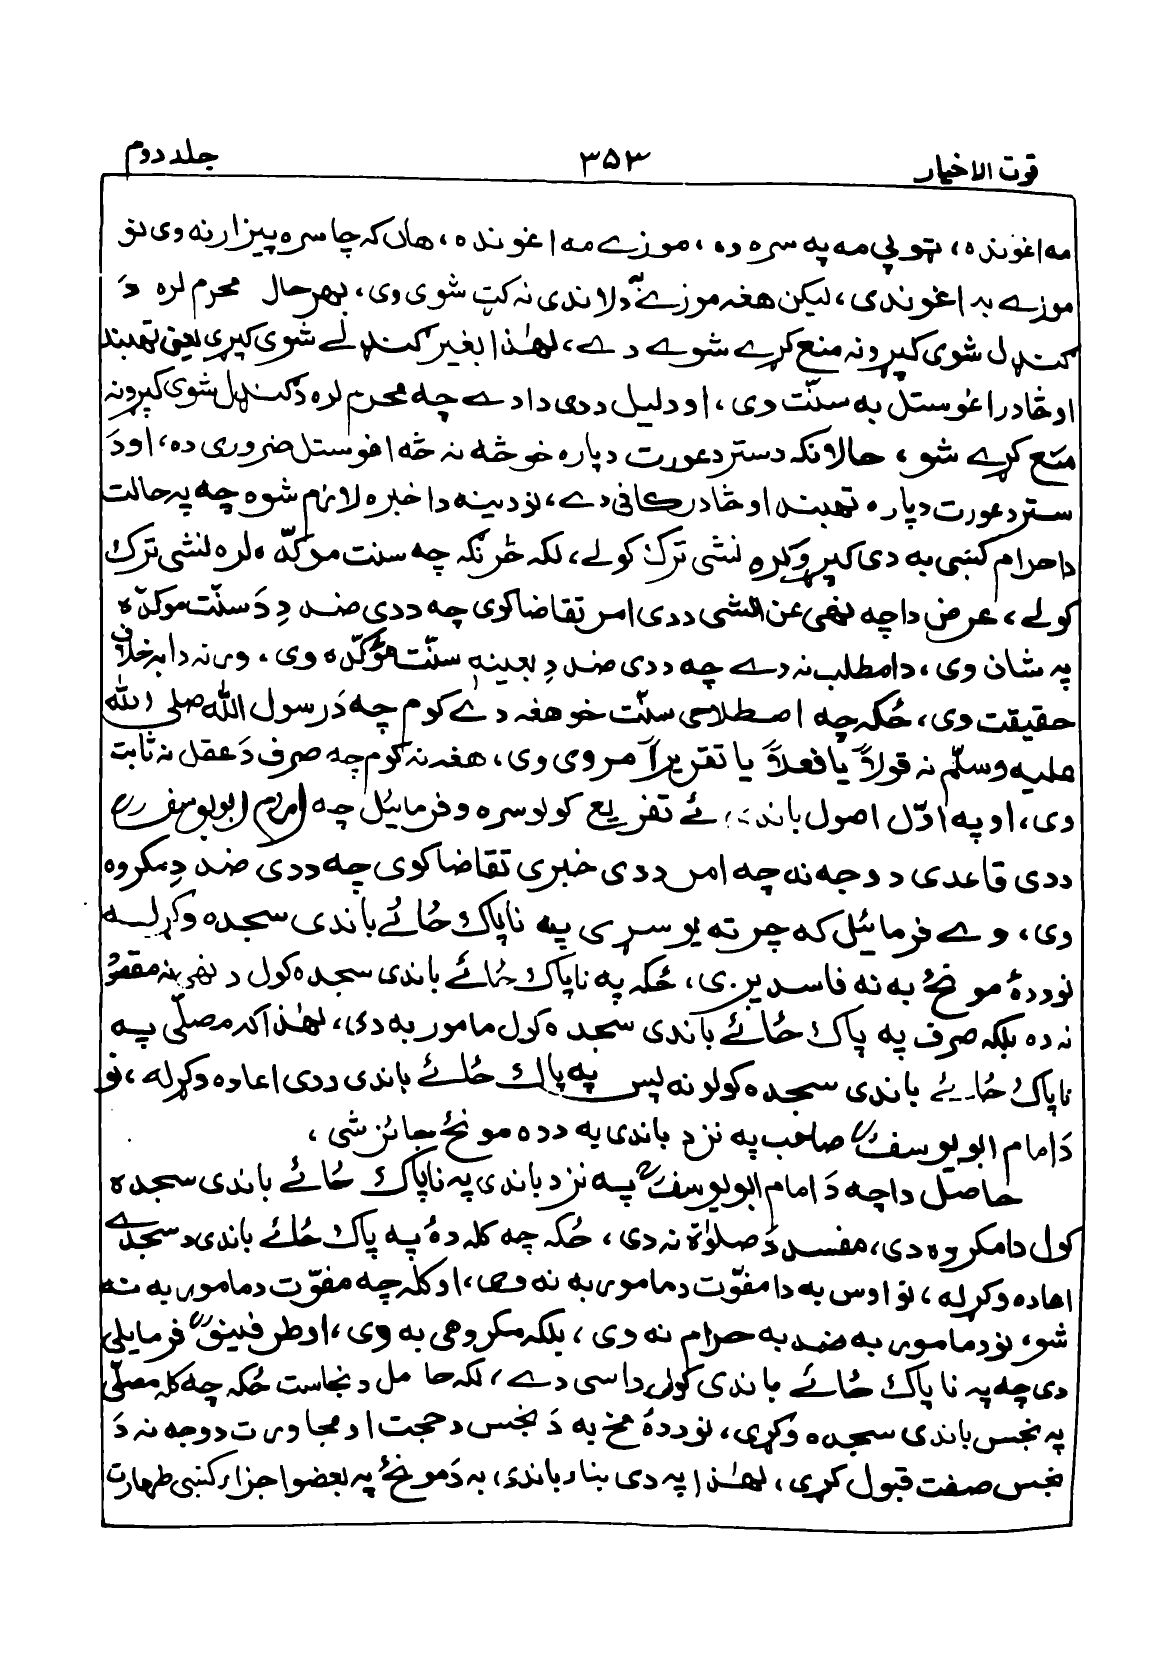 قوت الاخیار ۳۵۳ جلد دوم
مه اغونده، ټوپۍ مه په سره ده، موزے مه اغونده، هاں که چا سره پیزار نه وی نو
موزے به اغوندی، لیکن هغه موزے د لاندی نه کټ شوی وی، بهر حال محرم لره دَ
ګنډل شوی کپړو نه منع کړے شوے دے، لهٰذا بغیر ګنډلے شوی کپړی یعنی تهبند
او څادر اغوستل به سنّت وی، او دلیل ددی دادے چه محرم لره د ګنډل شوی کپړو نه
منع کړے شو، حالانکه د ستر د عورت دپاره خو څه نه څه اغوستل ضروری ده، او دَ
ستر د عورت دپاره تهبند او څادر کافی دے، نو دینه دا خبره لازم شوه چه په حالت
د احرام کښی به دی کپړو لره نشی ترک کولے، لکه څرنګه چه سنت موکدّه لره نشی ترک
کولے، عرض دا چه نهی عن الشی ددی امر تقاضا کوی چه ددی ضد دِ دَ سنّت موکدّه
په شان وی، دا مطلب نه دے چه ددی ضد دِ بعینه سنّت مؤکّده وی، ورنه دا به خلاف
حقیقت وی، ځکه چه اصطلاحی سنّت خو هغه دے کوم چه دَ رسول الله صلی الله
علیه وسلّم نه قولاً یا فعلاً یا تقریراً مروی وی، هغه نه کوم چه صرف دَ عقل نه ثابت
وی، او په اوّل اصول باندے ئے تفریع کولو سره وفرمائیل چه امام ابو یوسف رح
ددی قاعدی د وجه نه چه امر ددی خبری تقاضا کوی چه ددی ضد دِ مکروه
وی، وے فرمائیل که چرته یو سړی په ناپاک ځائے باندی سجده وکړله
نو ددهٔ مونځ به نه فاسدیږی، ځکه په ناپاک ځائے باندی سجده کول د نهی نه مقصود
نه ده بلکه صرف په پاک ځائے باندی سجده کول مامور به دی، لهٰذا که مصلّی په
ناپاک ځائے باندی سجده کولو نه پس په پاک ځائے باندی ددی اعاده وکړله، نو
دَ امام ابو یوسف رح صاحب په نزد باندی به دده مونځ جائز شی،
حاصل دا چه دَ امام ابو یوسف رح په نزد باندی په ناپاک ځائے باندی سجده
کول دا مکروه دی، مفسد دَ صلوٰة نه دی، ځکه چه کله دهٔ په پاک ځائے باندی د سجدے
اعاده وکړله، نو اوس به دا مفوّت د مامور به نه وی، او کله چه مفوّت د مامور به نه
شو، نو د مامور به ضد به حرام نه وی، بلکه مکروهی به وی، او طرفینؒ فرمایلی
دی چه په ناپاک ځائے باندی کول داسی دے، لکه حامل د نجاست ځکه چه کله مصلّی
په نجس باندی سجده وکړی، نو ددهٔ مخ به دَ نجس د حجت او مجاورت د وجه نه دَ
نجس صفت قبول کړی، لهٰذا په دی بناء باندی، به دَ مونځ په بعضو اجزاء کښی طهارت